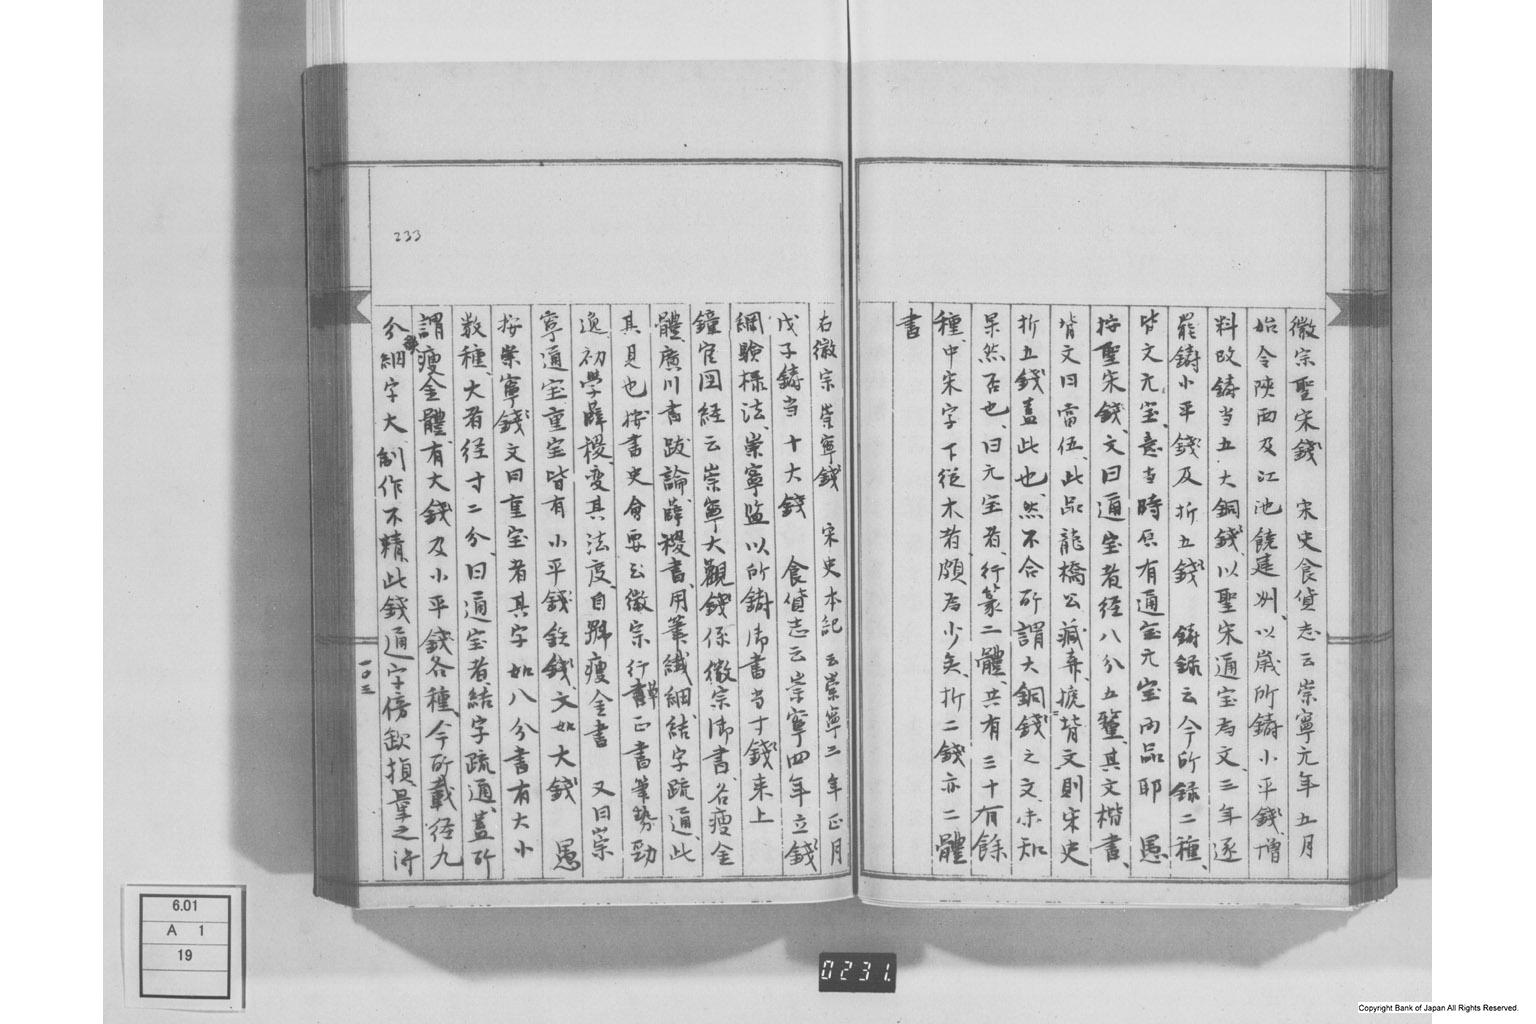 徽宗聖宋錢　宋史食貨志云崇寧元年五月
始令陝西及江池饒建州以歳所鋳小平錢增
料改鋳当五大銅錢以聖宋通宝為文三年逐
罷鋳小平錢及折五錢　鋳録云今所録二種
皆文元宝意当時原有通宝元宝両品耶　愚
按聖宋錢文曰通宝者径八分五釐其文楷書
背文曰當伍此品龍橋公蔵弆拠背文則宋史
折五錢蓋此也然不合所謂大銅錢之文未知
果然否也曰元宝者行篆二體共有三十有餘
種中宋字下従木者頗為少矣折二錢亦二體
書
右徽宗崇寧錢　宋史本記云崇寧二年正月
戊子鋳当十大錢　食貨志云崇寧四年立錢
綱験様法崇寧監以所鋳御書当十錢来上
鐘官図経云崇寧大觀錢係徽宗御書名瘦金
體廣川書跋論薛稷書用筆纎細結字疏通此
其見也按書史會要云徽宗行艸正書筆勢勁
逸初學薛稷変其法度自号瘦金書　又曰崇
寧通宝重宝皆有小平錢鉄錢文如大錢　愚
按崇寧錢文曰重宝者其字如八分書有大小
数種大者径寸二分曰通宝者結字疏通蓋所
謂瘦金體有大錢及小平錢各種今所載径九
分細字大制作不精此錢通字傍欽損羣之
233
一〇三
6.01
A 1
19
0231.
Copyright Bank of Japan All Rights Reserved.